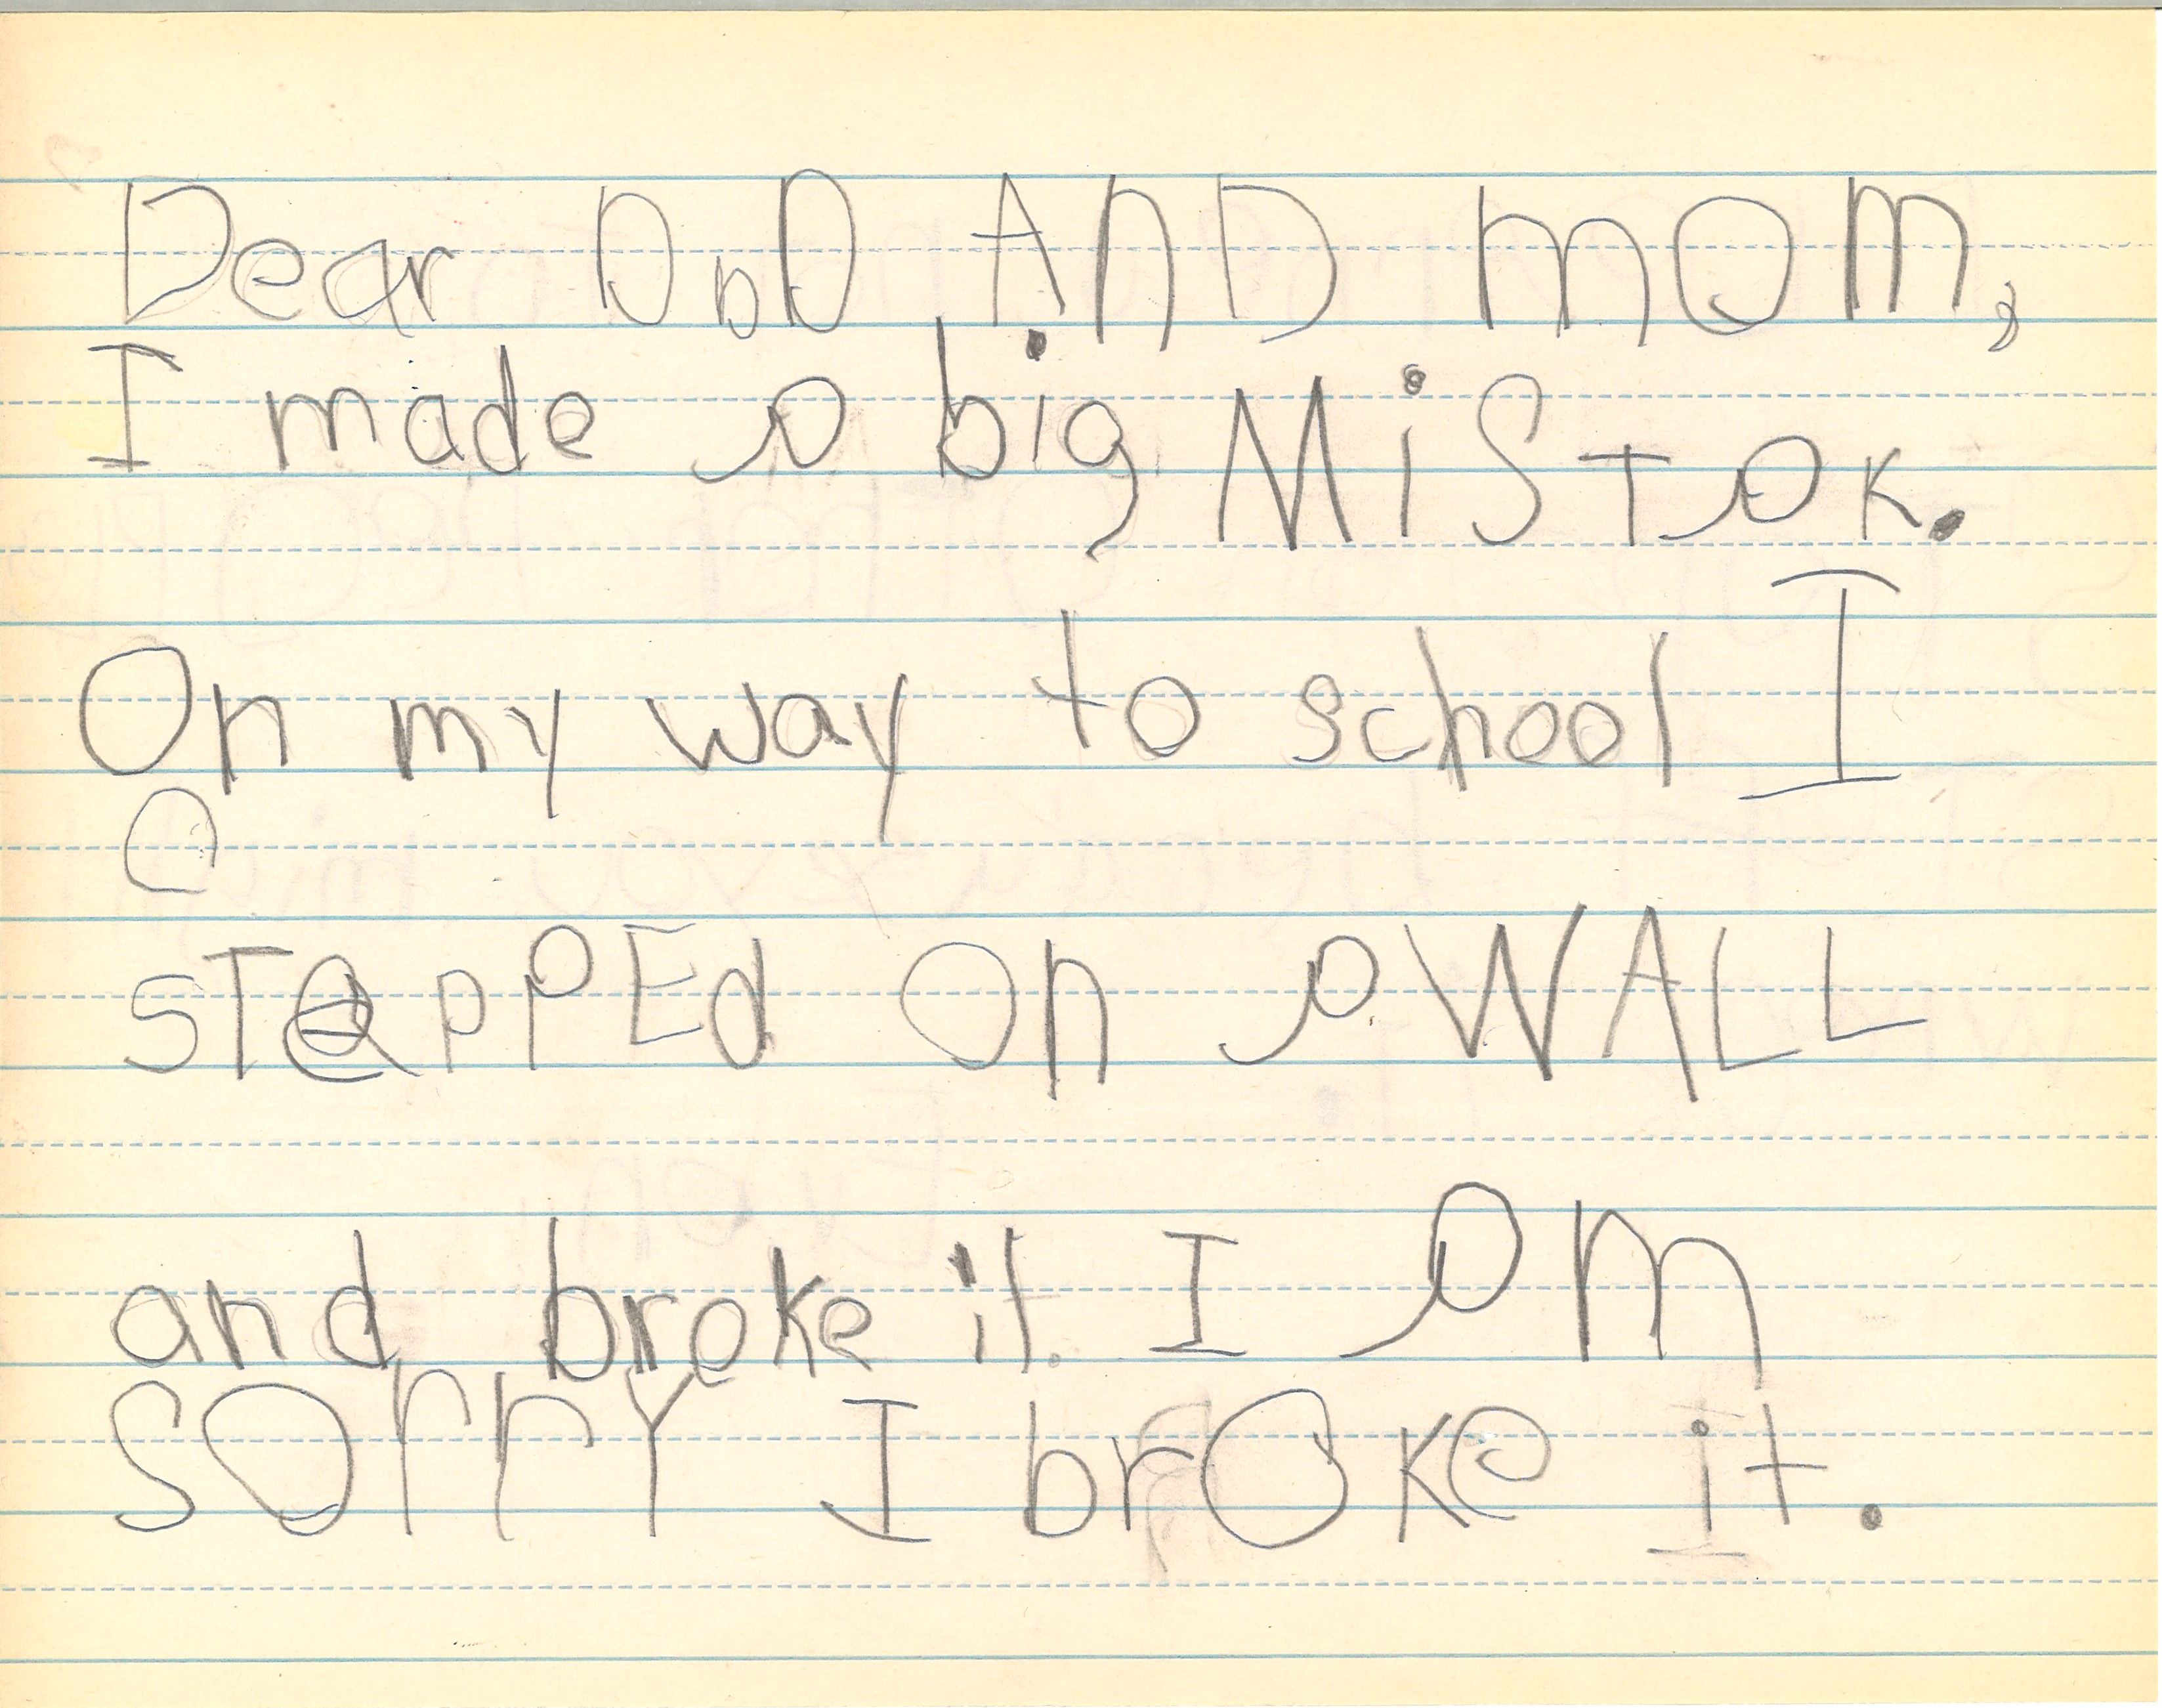 Dear DaD AnD mOm,
I made a big MiSTaK.
On my way to school I
STePPEd On a WALL
and broke it. I am
SOrrY I brOke it.